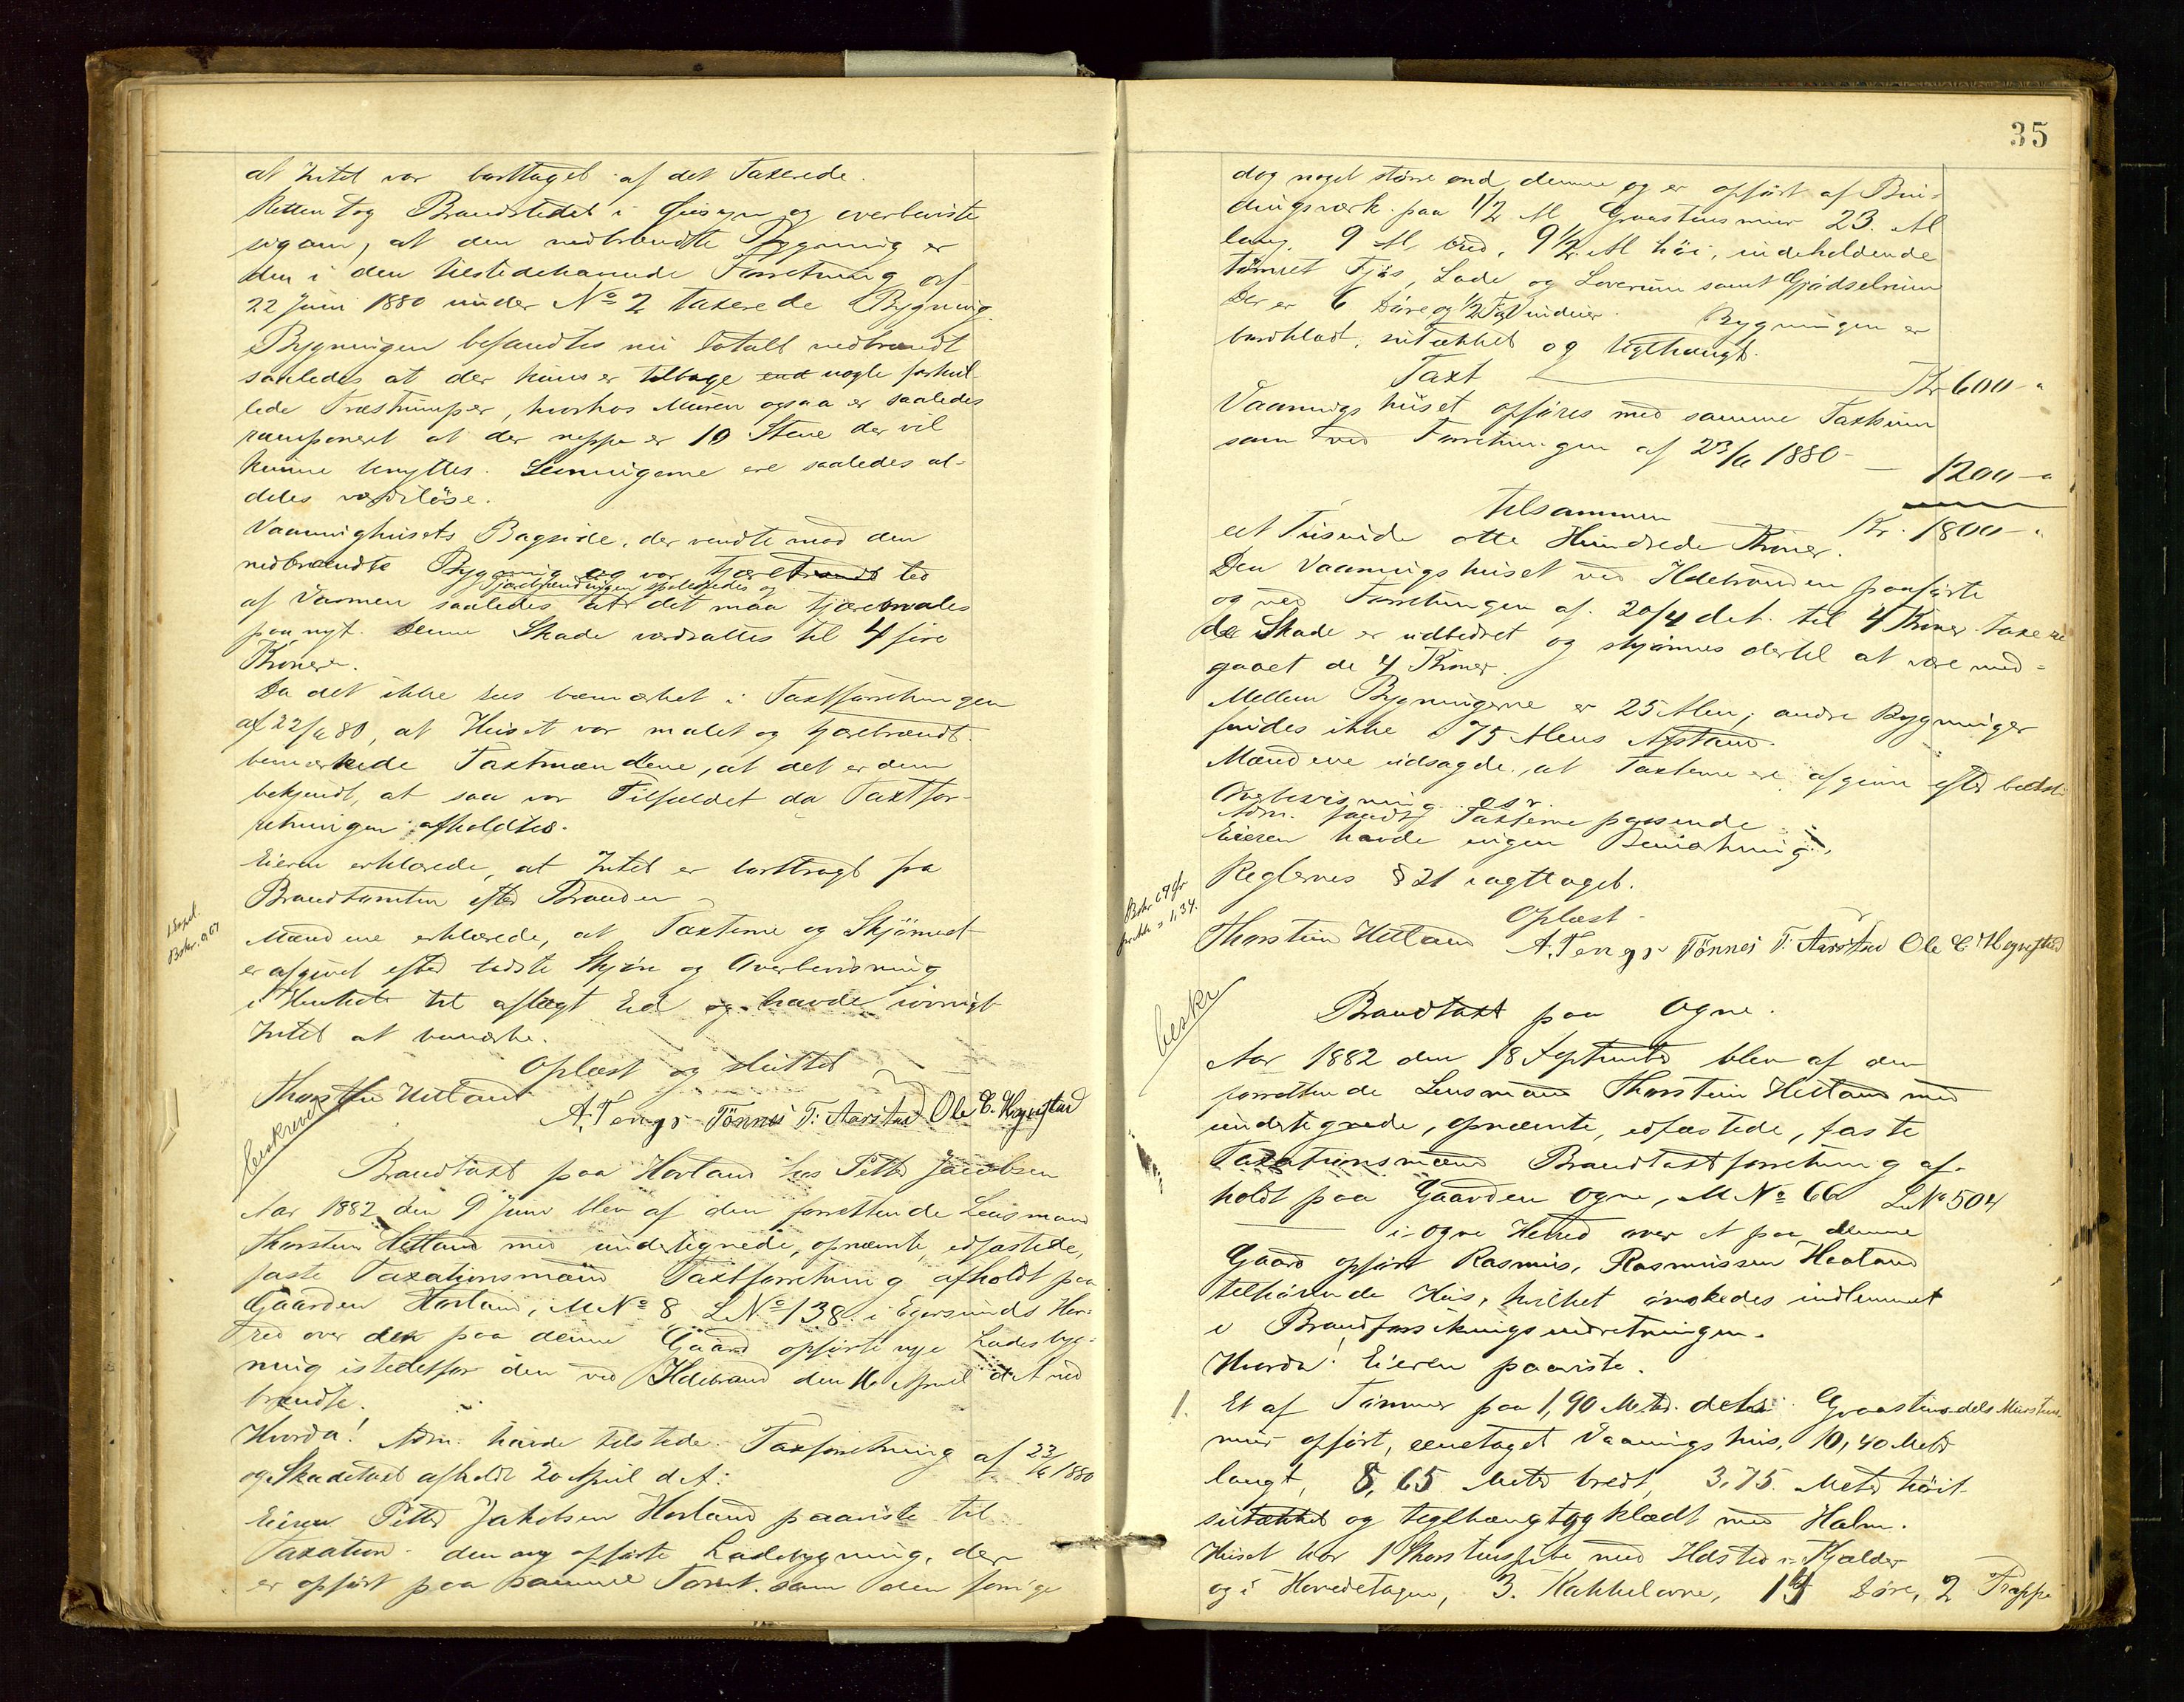 at Intet var borttaget af det Taxerede.
Retten tog Brandstedet i Øiesyn og overbeviste
sig om, at den nedbrændte Bygning er
den i den tilstedehavende Forretning af
22 Juni 1880 under No 2 taxerede Bygning.
Bygningen befandtes nu totalt nedbrændt
saaledes at der kuns er tilbage end nogle forkul-
lede Træstumper, hvorhos Muren ogsaa er saaledes
ramponeret at der neppe er 10 Stene der vil
kunne benyttes. Levningerne ere saaledes al-
deles værdiløse.
Vaaninghusets Bagside, der vendte mod den
nedbrændte Bygning og var tjærebrændt led
Tjærebrændingen ødelagdes og
af Varmen saaledes at det maa tjæremales
paa nyt. Denne Skade værdsattes til 4 fire
Kroner.
Da det ikke sees bemærket i Taxtforretningen
af 22/6 80, at Huset var malet og tjærebrændt
bemærkede Taxtmændene, at det er dem
bekjendt, at saa var Tilfældet da Taxtfor-
retningen afholdtes.
Eieren erklærede, at Intet er borttragt fra
Brandtomten efter Branden
1 Expel.
Bekr. 0,67
Mændene erklærede, at Taxterne og Skjønnet
er afgivet efter bedste Skjøn og Overbevisning
i Henhold til aflagt Ed og havde iøvrigt
Intet at bemærke.
Oplæst og sluttet
Thorstein Hetland
A. Tengs Tönnes T. Aarstad Ole E. Hegrestad
beskrevet
Brandtaxt paa Hovland hos Peder Jacobsen
Aar 1882 den 9 Juni blev af den forrettende Lensmand
Thorstein Hetland med undertegnede, opnævnte, edfæstede,
faste Taxationsmænd Taxtforretning afholdt paa
Gaarden Hovland, M No 8 L No 138 i Egersunds Her-
red over den paa denne Gaard opførte nye Ladebyg-
ning istedetfor den ved Ildebrand den 16 April d. A. ned
brændte.
Hvorda! Adm. havde tilstede Taxforretning af 22/6 1880
og Skadetaxt afholdt 20 April d. A:
Eieren Peder Jakobsen Hovland paaviste til
Taxation den ny opførte Ladebygning, der
er opført paa samme Tomt som den forrige
35
dog noget större end denne og er opført af Bin-
dingsværk paa 1/2 Al Graastensmur 23 Al
lang, 9 Al bred, 9 1/2 Al høi, indeholdende
tømret Fjøs, Lade og Loverum samt Gjødselrum
Der er 6 Döre og 1/2 Fag Vinduer. Bygningen er
bordklædt, sutækket og teglhængt.
Taxt Kr 600 -"
Vaaningshuset opføres med samme Taxtsum
som ved Forretningen af 23/6 1880 - — 1200 -"
tilsammen Kr. 1800 -"
eet Tusinde otte Hundrede Kroner.
Den Vaaningshuset ved Ildebranden paaførte
og ved Forretningen af 20/4 d. A. til 4 Kroner taxere
de Skade er udbedret og skjønnes dertil at være med-
gaaet de 4 Kroner.
Mellem Bygningerne er 25 Alen; andre Bygninger
findes ikke i 75 Alens Afstand.
Mændene udsagde, at Taxterne ere afgivne efter bedste
Overbevisning o.s.v.
Adm. fandt Taxterne passende
Eieren havde ingen Bemærkning.
Reglernes § 21 iagttaget.
Oplæst
Thorstein Hetland A. Tengs Tönnes T. Aarstad Ole E. Hegrestad
beskr
Brandtaxt paa Ogne.
Aar 1882 den 18 September blev af den
forrettende Lensmand Thorstein Hetland med
undertegnede, opnævnte, edfæstede, faste
Taxationsmænd Brandtaxtforretning af-
holdt paa Gaarden Ogne, M No 66 L No 504
i Ogne Herred over et paa denne
Gaard opført Rasmus Rasmussen Haaland
tilhørende Hus, hvilket ønskedes indlemmet
i Brandforsikringsindretningen.
Hvorda! Eieren paaviste.
1. Et af Tømmer paa 1,90 Meter dels Graastens dels Murstens-
mur opført, eenetaget Vaaningshus, 10,40 Meter
langt, 8,65 Meter bredt, 3,75 Meter høit
sutækket og teglhængt og klædt med Halm.
Huset har 1 Skorstenspibe med Ildsted i Kjælder
og i Hovedetagen, 3 Kakkelovne, 14 Döre, 2 Trapper